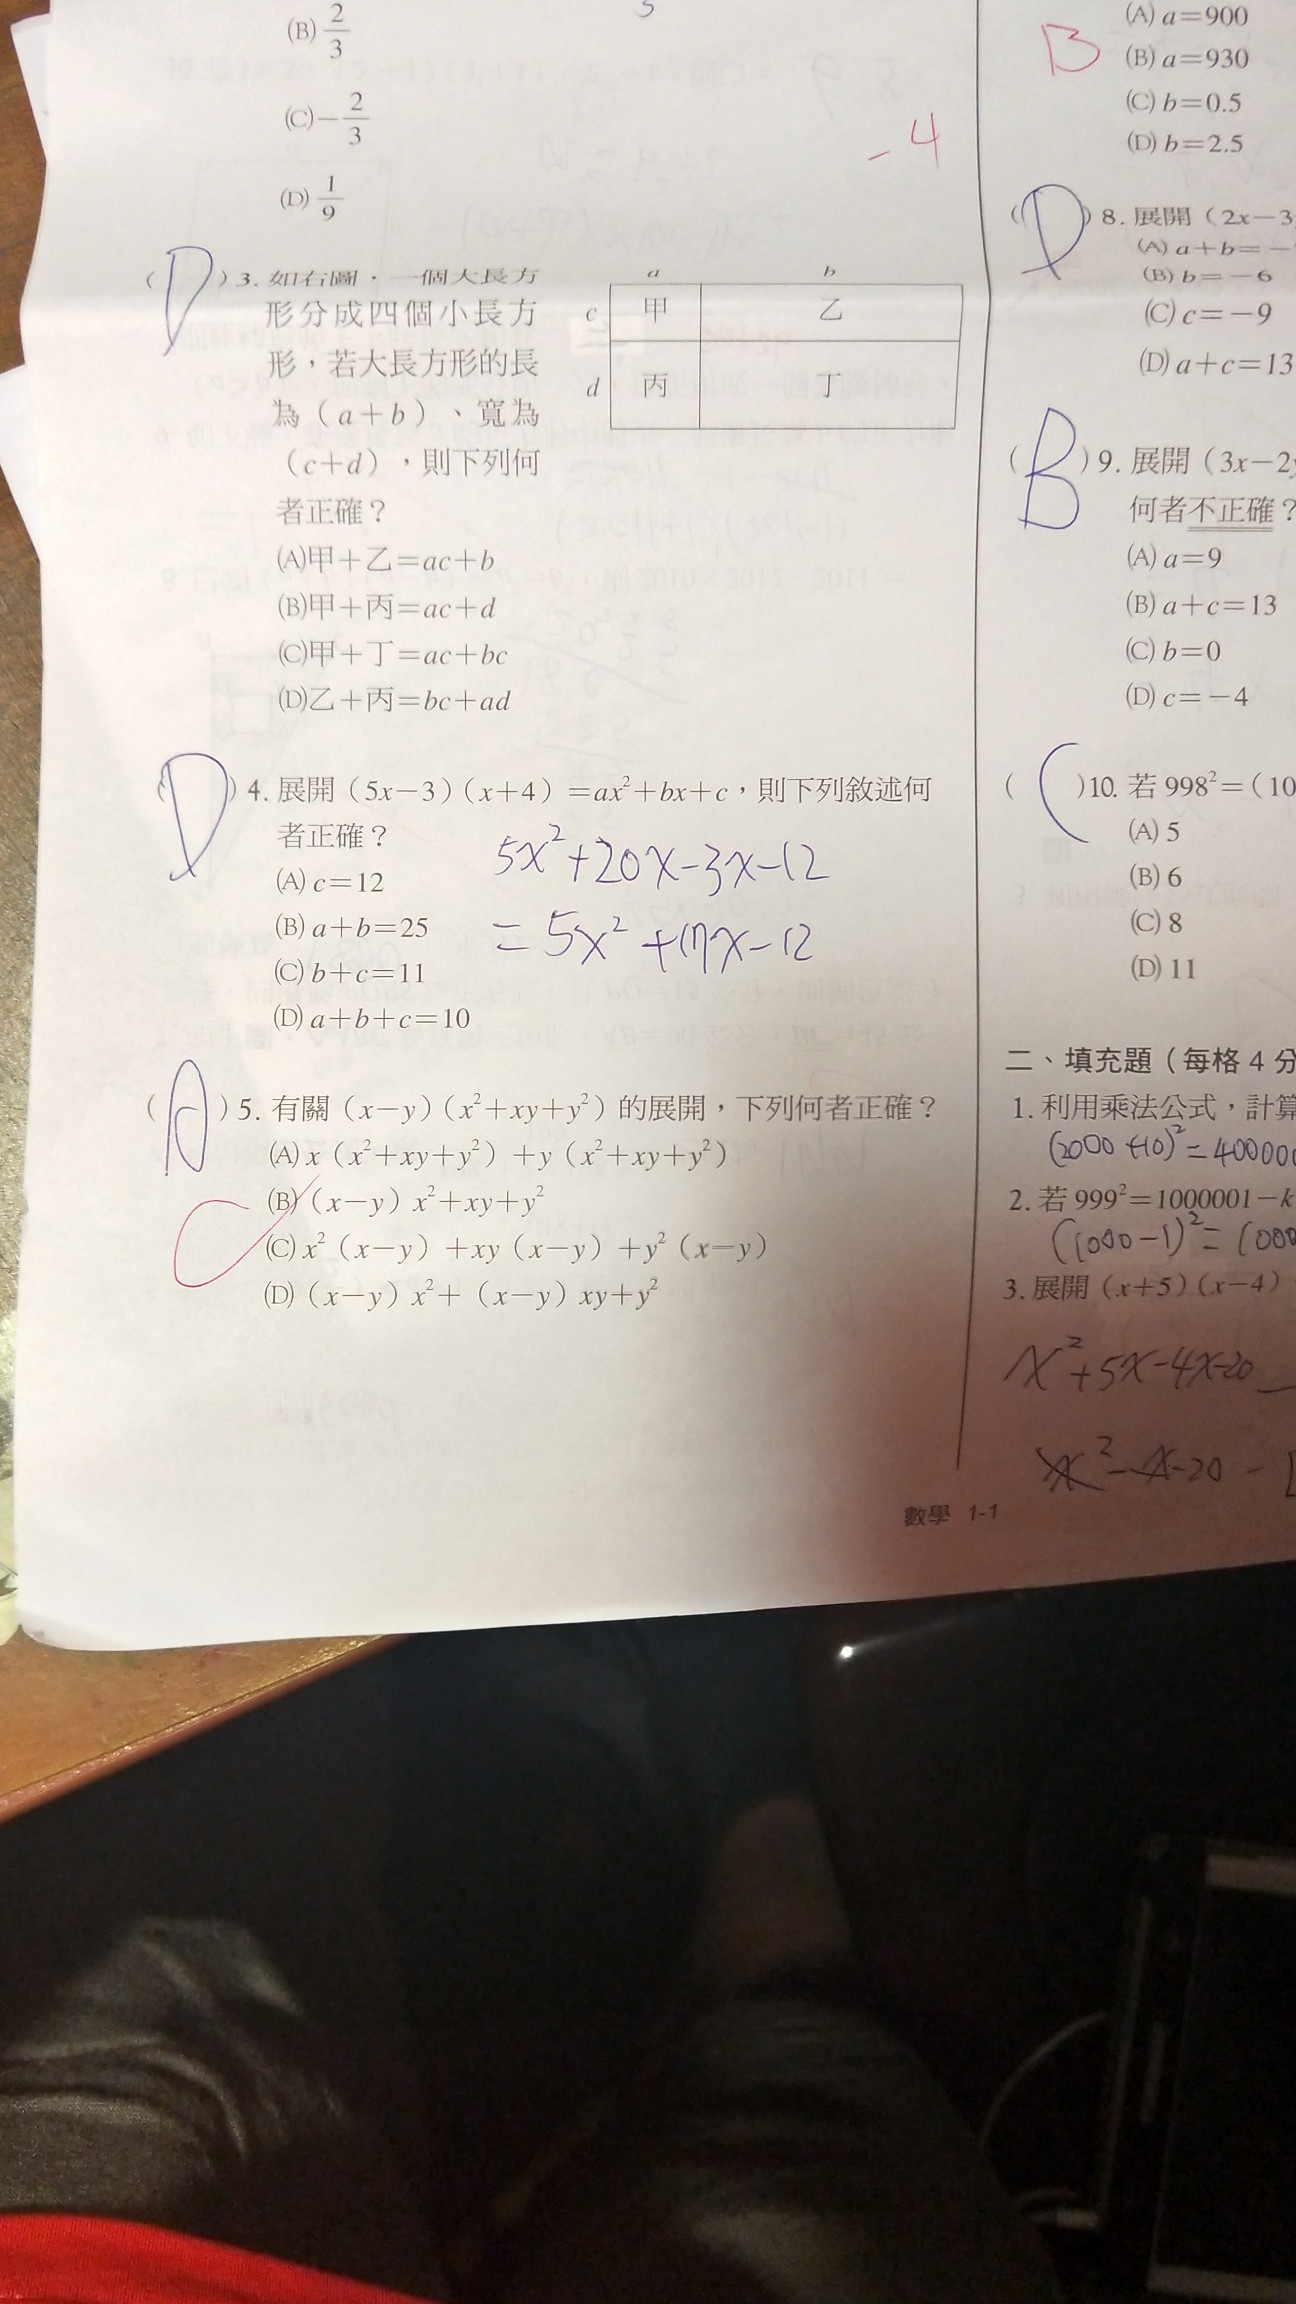 (B) 2/3
(C) −2/3
(D) 1/9
−4
( D ) 3. 如右圖，一個大長方
形分成四個小長方
形，若大長方形的長
為（a＋b）、寬為
（c＋d），則下列何
者正確？
a b
c 甲 乙
d 丙 丁
(A)甲＋乙＝ac＋b
(B)甲＋丙＝ac＋d
(C)甲＋丁＝ac＋bc
(D)乙＋丙＝bc＋ad
( D ) 4. 展開（5x－3）（x＋4）＝ax²＋bx＋c，則下列敘述何
者正確？
5x²+20x-3x-12
= 5x²+17x-12
(A) c＝12
(B) a＋b＝25
(C) b＋c＝11
(D) a＋b＋c＝10
( A ) 5. 有關（x－y）（x²＋xy＋y²）的展開，下列何者正確？
(A) x（x²＋xy＋y²）＋y（x²＋xy＋y²）
(B)（x－y）x²＋xy＋y²
C
(C) x²（x－y）＋xy（x－y）＋y²（x－y）
(D)（x－y）x²＋（x－y）xy＋y²
B
(A) a＝900
(B) a＝930
(C) b＝0.5
(D) b＝2.5
( D ) 8. 展開（2x－3
(A) a＋b＝－
(B) b＝－6
(C) c＝－9
(D) a＋c＝13
( B ) 9. 展開（3x－2y
何者不正確？
(A) a＝9
(B) a＋c＝13
(C) b＝0
(D) c＝－4
( C ) 10. 若 998²＝（10
(A) 5
(B) 6
(C) 8
(D) 11
二、填充題（每格 4 分
1. 利用乘法公式，計算
(2000+10)²=400000
2. 若 999²＝1000001－k
(1000-1)²=(000
3. 展開（x＋5）（x－4）
x²+5x-4x-20
x²-x-20
數學 1-1